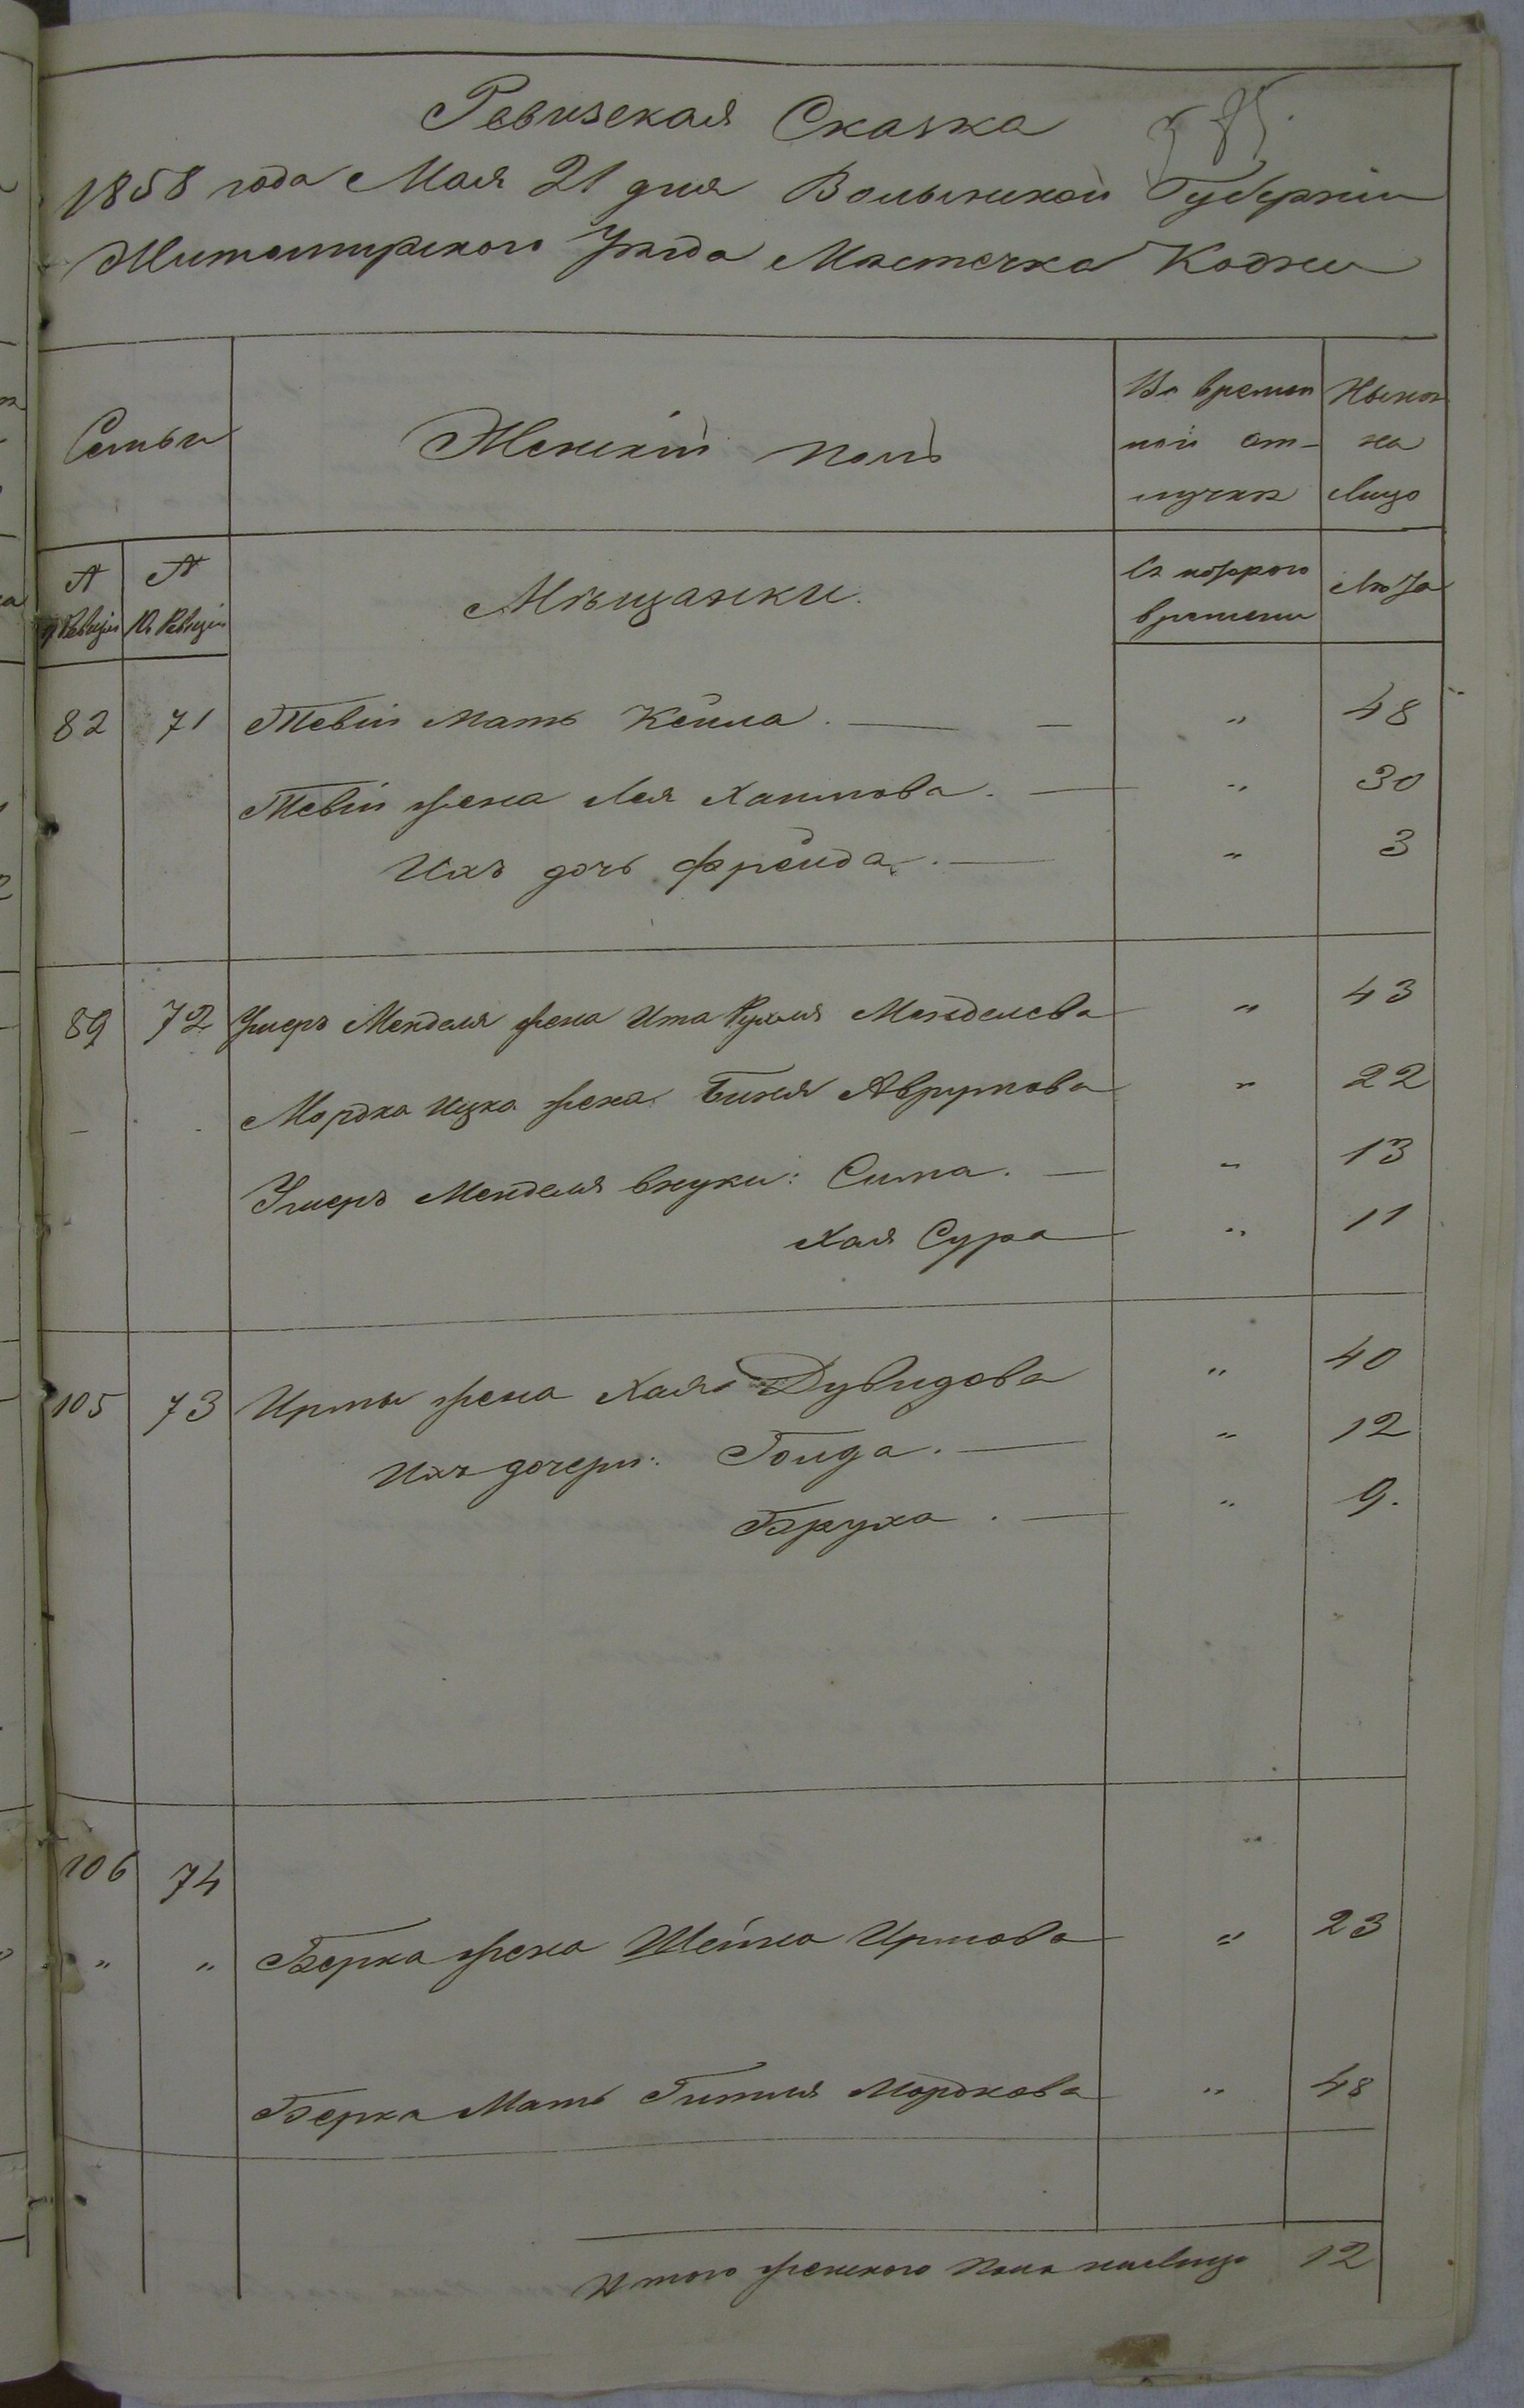 Ревизская Сказка
1858 года Мая 21 дня Волынской Губерніи
Житомирского Уезда Местечка Кодни
Семьи
Женскій полъ
Во времен
ной от-
лучке
Ныне
на
лицо
№
9 Ревизіи
№
10 Ревизіи
Мещанки.
Съ котораго
времени
Лета
82 71 Тевіи мать Кейла. — — " 48
Тевіи жена Лея Хаимова. — " 30
Ихъ дочь Фрейда. — " 3
89 72 Умеръ Менделя жена Ита Рухля Менделева " 43
Мордка Ицка жена Биня Аврумова " 22
Умеръ Менделя внуки: Сима. — " 13
Хая Сура " 11
105 73 Ирмы жена Хая Дувидова " 40
Ихъ дочери: Голда. — " 12
Бруха. — " 9.
106 74 "
" " Берка жена Шейна Ирмова " 23
Берка Мать Гитля Мордкова " 48
Итого женского пола налицо 12